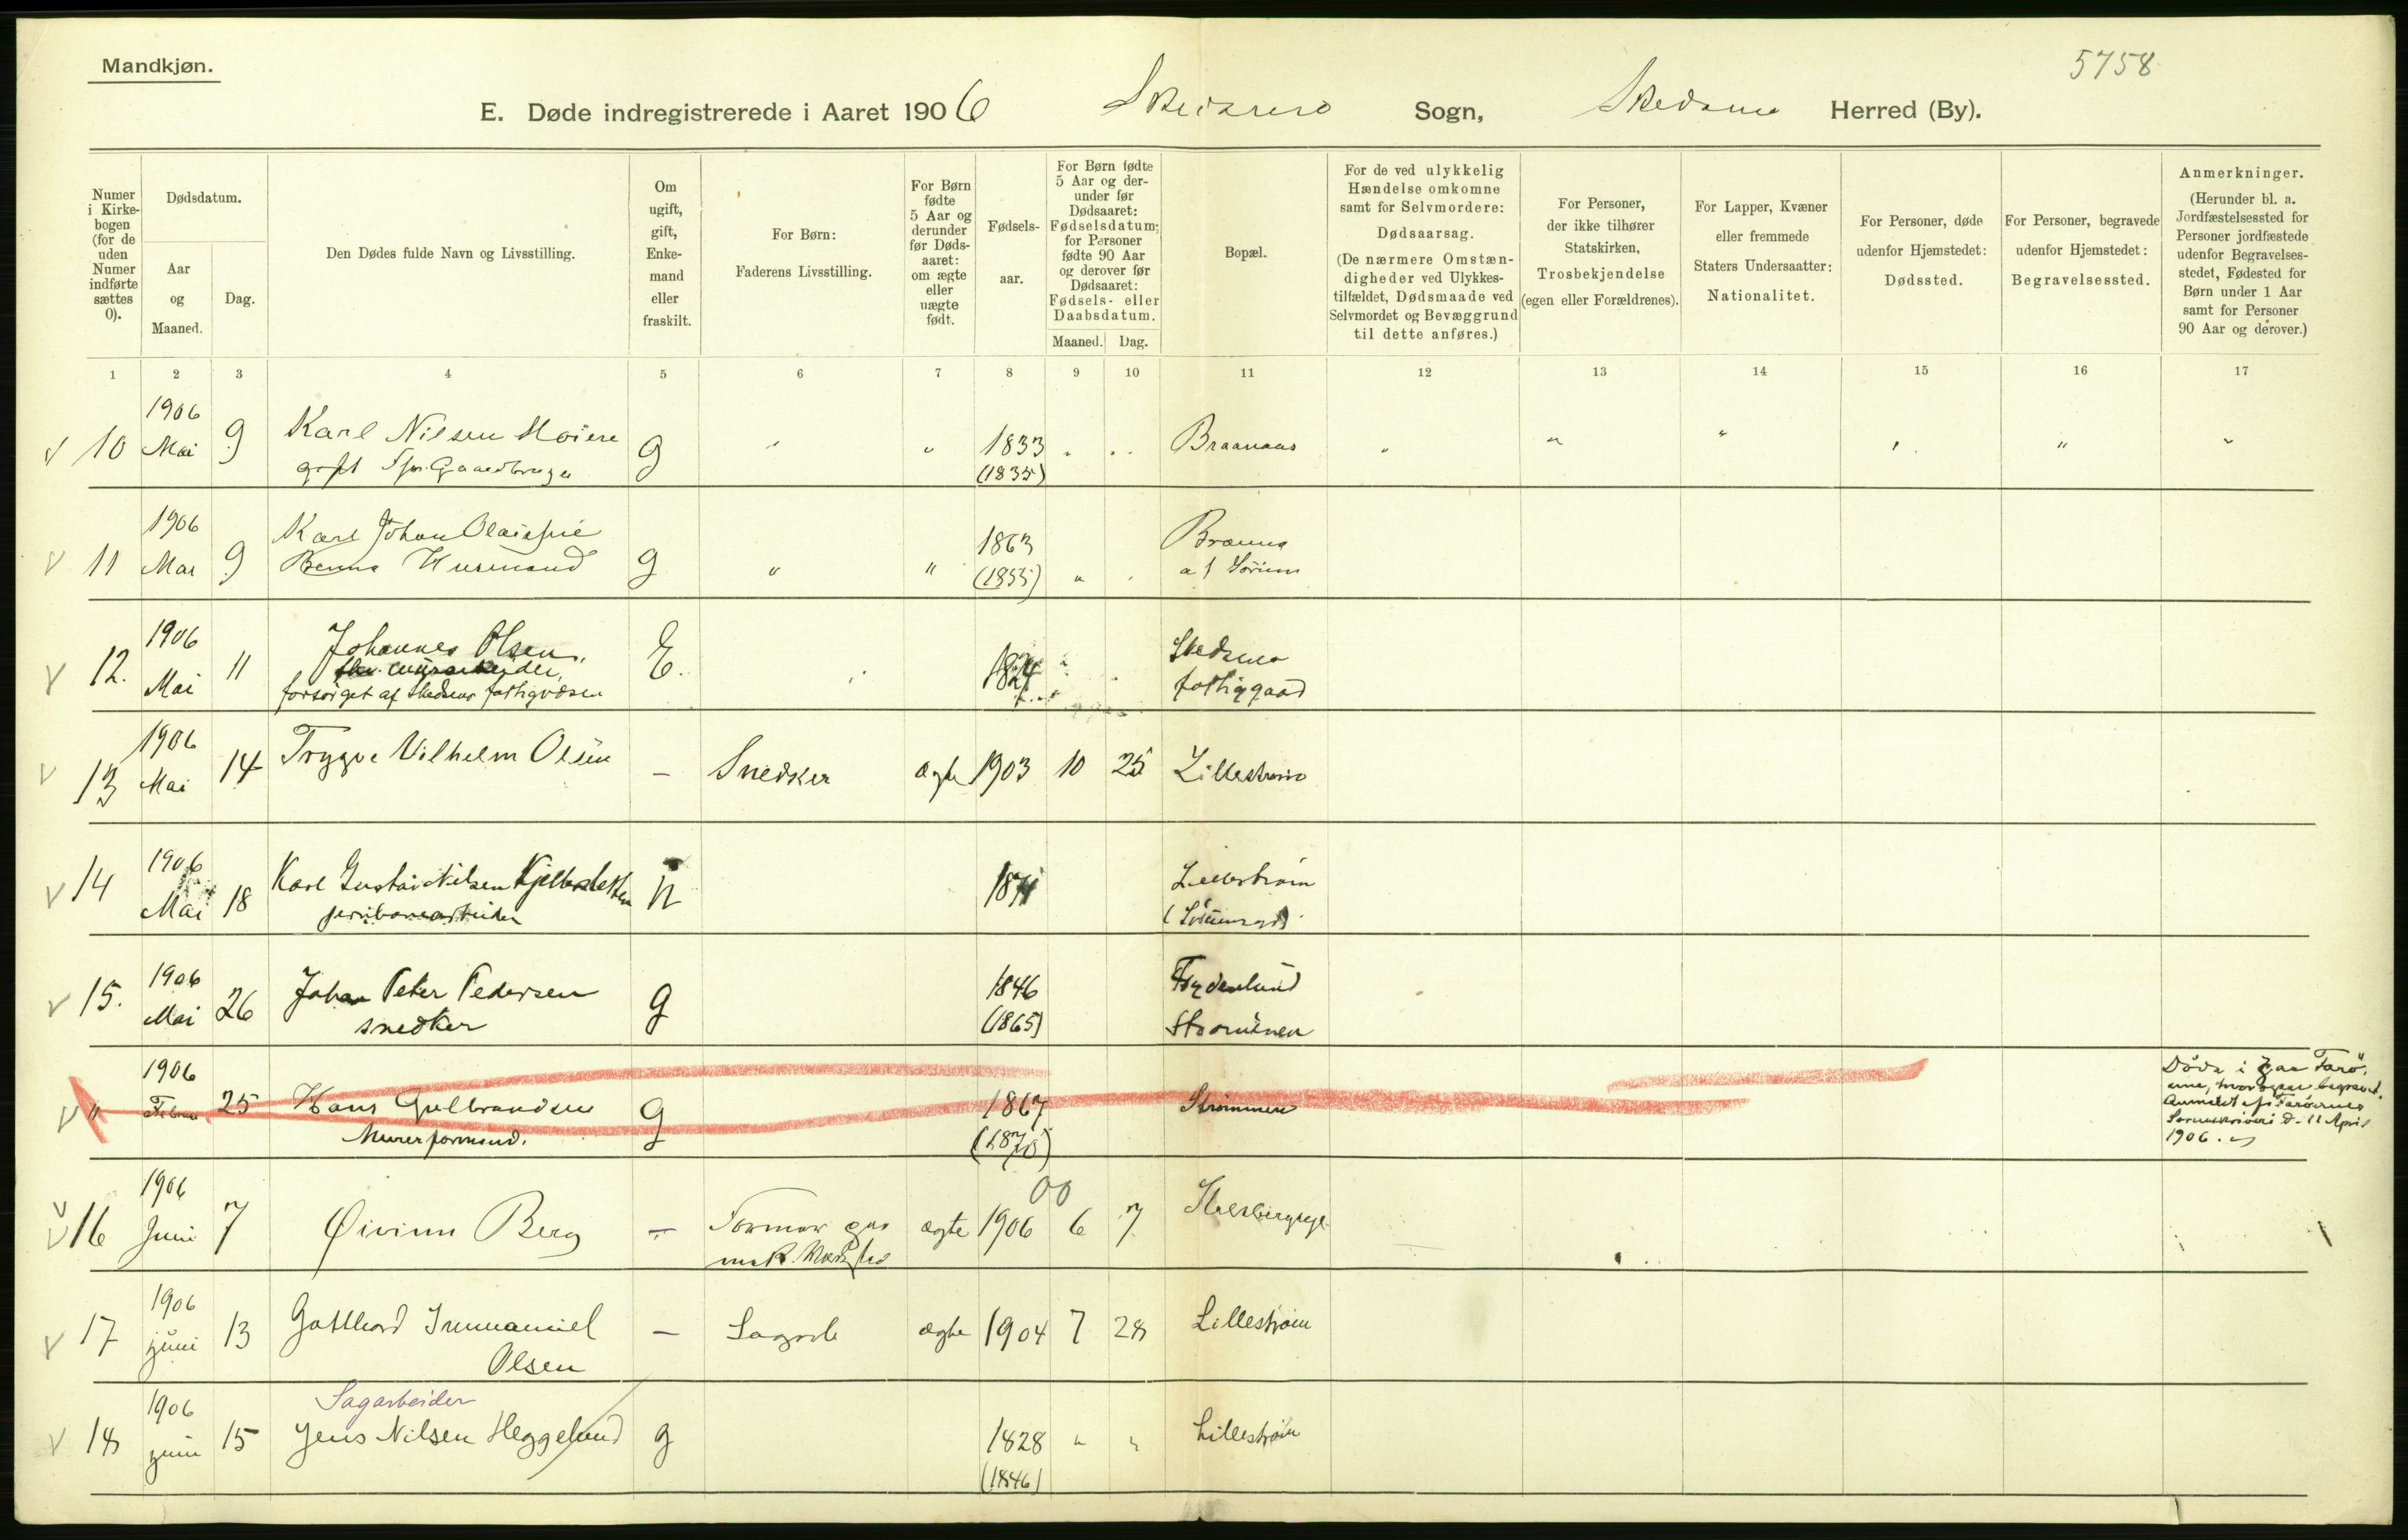 Mandkjøn.
5758
E. Døde indregistrerede i Aaret 1906 Sogn, Skedsmo Herred (By).
Numer i Kirkebogen (for de uden Numer indførte sættes 0).
Dødsdatum.
Aar og Maaned.
Dag.
Den Dødes fulde Navn og Livsstilling.
Om ugift, gift, Enkemand eller fraskilt.
For Børn: Faderens Livsstilling.
For Børn fødte 5 Aar og derunder før Dødsaaret: om ægte eller uægte født.
Fødselsaar.
For Børn fødte 5 Aar og derunder før Dødsaaret: Fødselsdatum; for Personer fødte 90 Aar og derover før Dødsaaret: Fødsels- eller Daabsdatum.
Maaned. Dag.
Bopæl.
For de ved ulykkelig Hændelse omkomne samt for Selvmordere: Dødsaarsag. (De nærmere Omstændigheder ved Ulykkestilfældet, Dødsmaade ved Selvmordet og Bevæggrund til dette anføres.)
For Personer, der ikke tilhører Statskirken, Trosbekjendelse (egen eller Forældrenes).
For Lapper, Kvæner eller fremmede Staters Undersaatter: Nationalitet.
For Personer, døde udenfor Hjemstedet: Dødssted.
For Personer, begravede udenfor Hjemstedet: Begravelsessted.
Anmerkninger. (Herunder bl. a. Jordfæstelsessted for Personer jordfæstede udenfor Begravelsesstedet, Fødested for Børn under 1 Aar samt for Personer 90 Aar og derover.)
1 2 3 4 5 6 7 8 9 10 11 12 13 14 15 16 17
1906
10 Mai 9 Karl Nilsen g " " 1833 Braanaas " " " " " "
(1835)
1906
11 Mai 9 Karl Johan g " " 1863 "
Husmand (1855) af Sørum
1906
12. Mai 11 Johannes Olsen, E. 1824 Skedsmo
forsørget af Skedsmo fattigvæsen fattiggaard
1906
13 Mai 14 Trygve Vilhelm Olsen – Snedker ægte 1903 10 25 Lillestrøm
1906
14 Mai 18 Karl Gustav Nilsen 1871 Lillestrøm
jernbanearbeider
1906
15. Mai 26 Johan Peter Pedersen g 1846 Frydenlund
snedker (1865) Strømmen
1906
" Februar 25 Hans Gulbrandsen g 1867 Strømmen
Murerformand. (1878)
Døde i
hvor ogsaa begravet.
Anmeldt af Færøernes
Sorenskriveri d. 11 April
1906.
1906 00
16 Juni 7 Øivinn Berg – ægte 1906 6 7
1906
17 juni 13 Gotthard Immanuel – ægte 1904 7 28 Lillestrøm
Olsen
Sagarbeider
1906
18 juni 15 Jens Nilsen Heggelund g 1828 " " Lillestrøm
(1846)